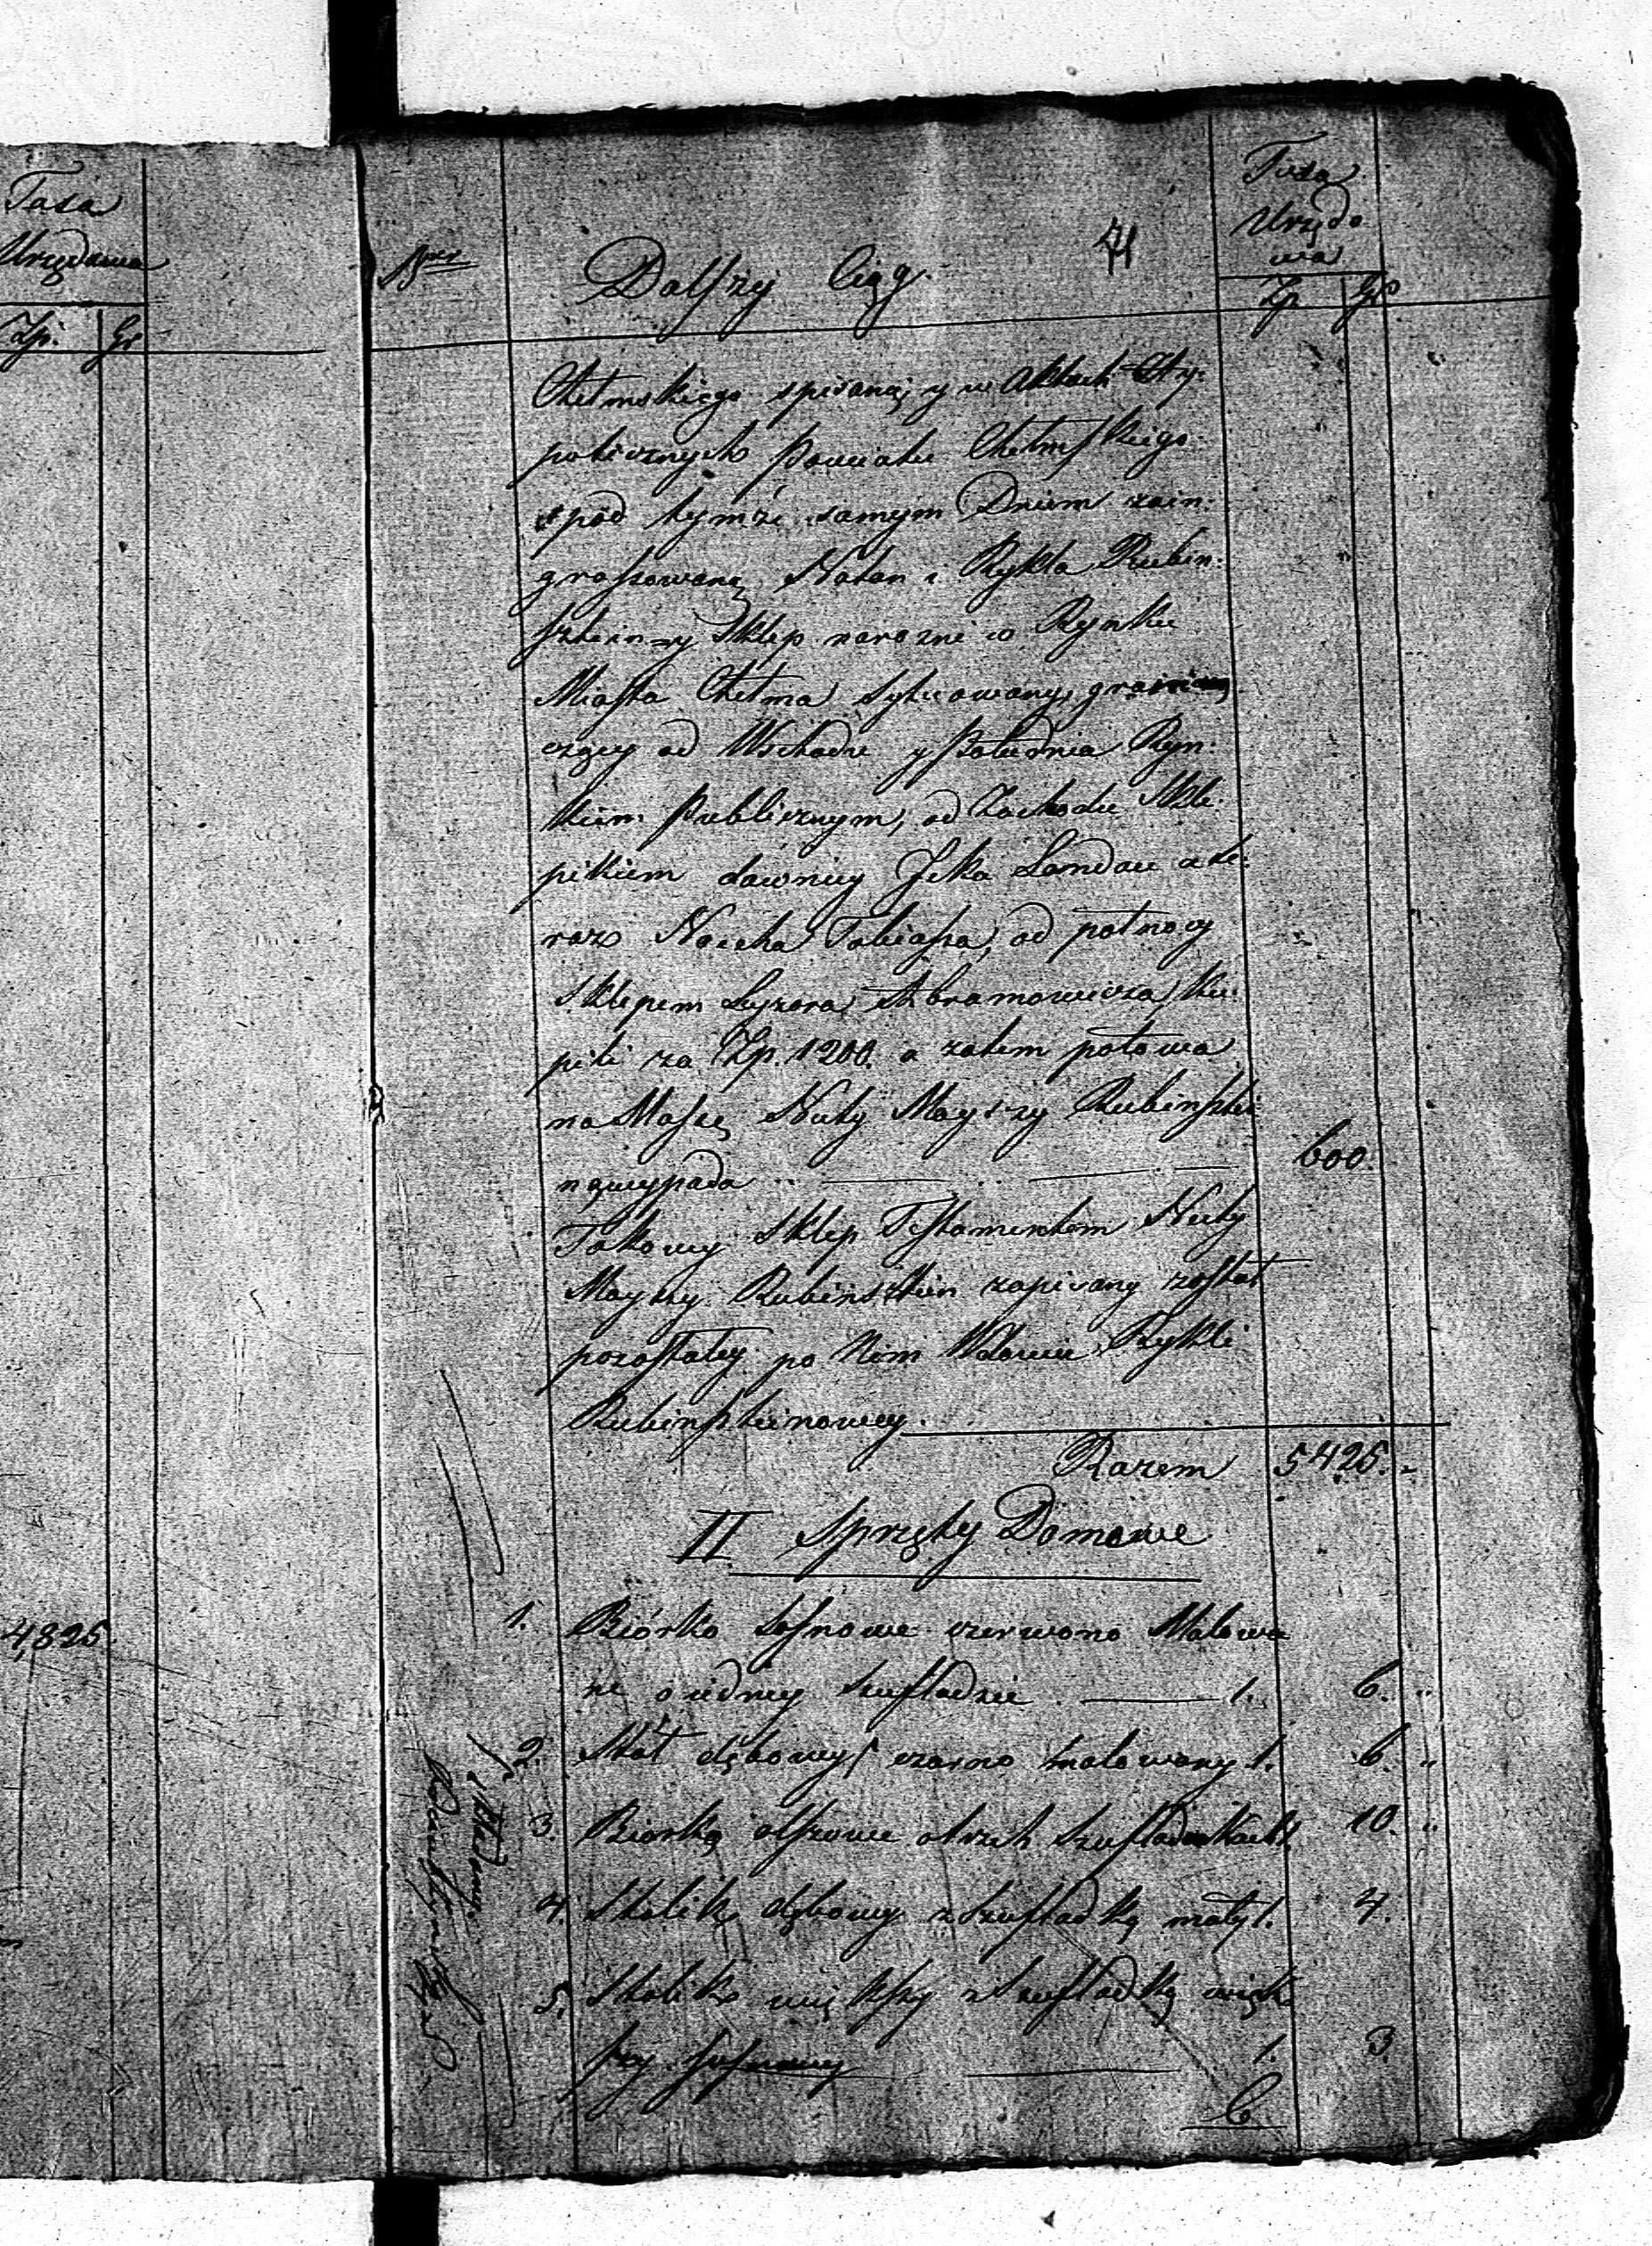 Tasa
Urzędowa
Zp. Gr
4,825
Nro
Dalszy Ciąg.
Tasa
Urzędo
wa
Zp Gr
Chełmskiego spisanej y w Aktach Hy-
potecznych Powiatu Chełmskiego
pod tymże samym Dniem zain-
grossowaną, Natan i Rykla Rubin-
sztein y Sklep narozni w Rynku
Miasta Chełma sytuowany, grani
czący od Wschodu y Południa Ryn-
kiem Publicznym, od Zachodu Skle-
pikiem dawniey Icka Landau a te-
raz Noecha Tobiasza, od połnocy
Sklepem Leyzora Abramowicza, ku-
pili za Zp. 1200. a zatem połowa
na Massę Nuty Mayszy Rubinszte
na wypada 600.
Takowy Sklep Testamentem Nuty
Mayszy Rubinsztein zapisany został
pozostałey po Nim Wdowie Rykli
Rubinszteinowey.
Razem 5425. -
II Sprzęty Domowe
1. Biórko sosnowe czerwono Malowa
ne o iedney szufladzie 1. 6. "
2. Stół dębowy czarno malowany 1. 6. "
3. Biórko olszowe o trzech szufladkach 1. 10. "
4. Stolik dębowy z szufladką mały 1. 4.
5. Stolik większy z Szufladką więk
szy sosnowy 1. 3.